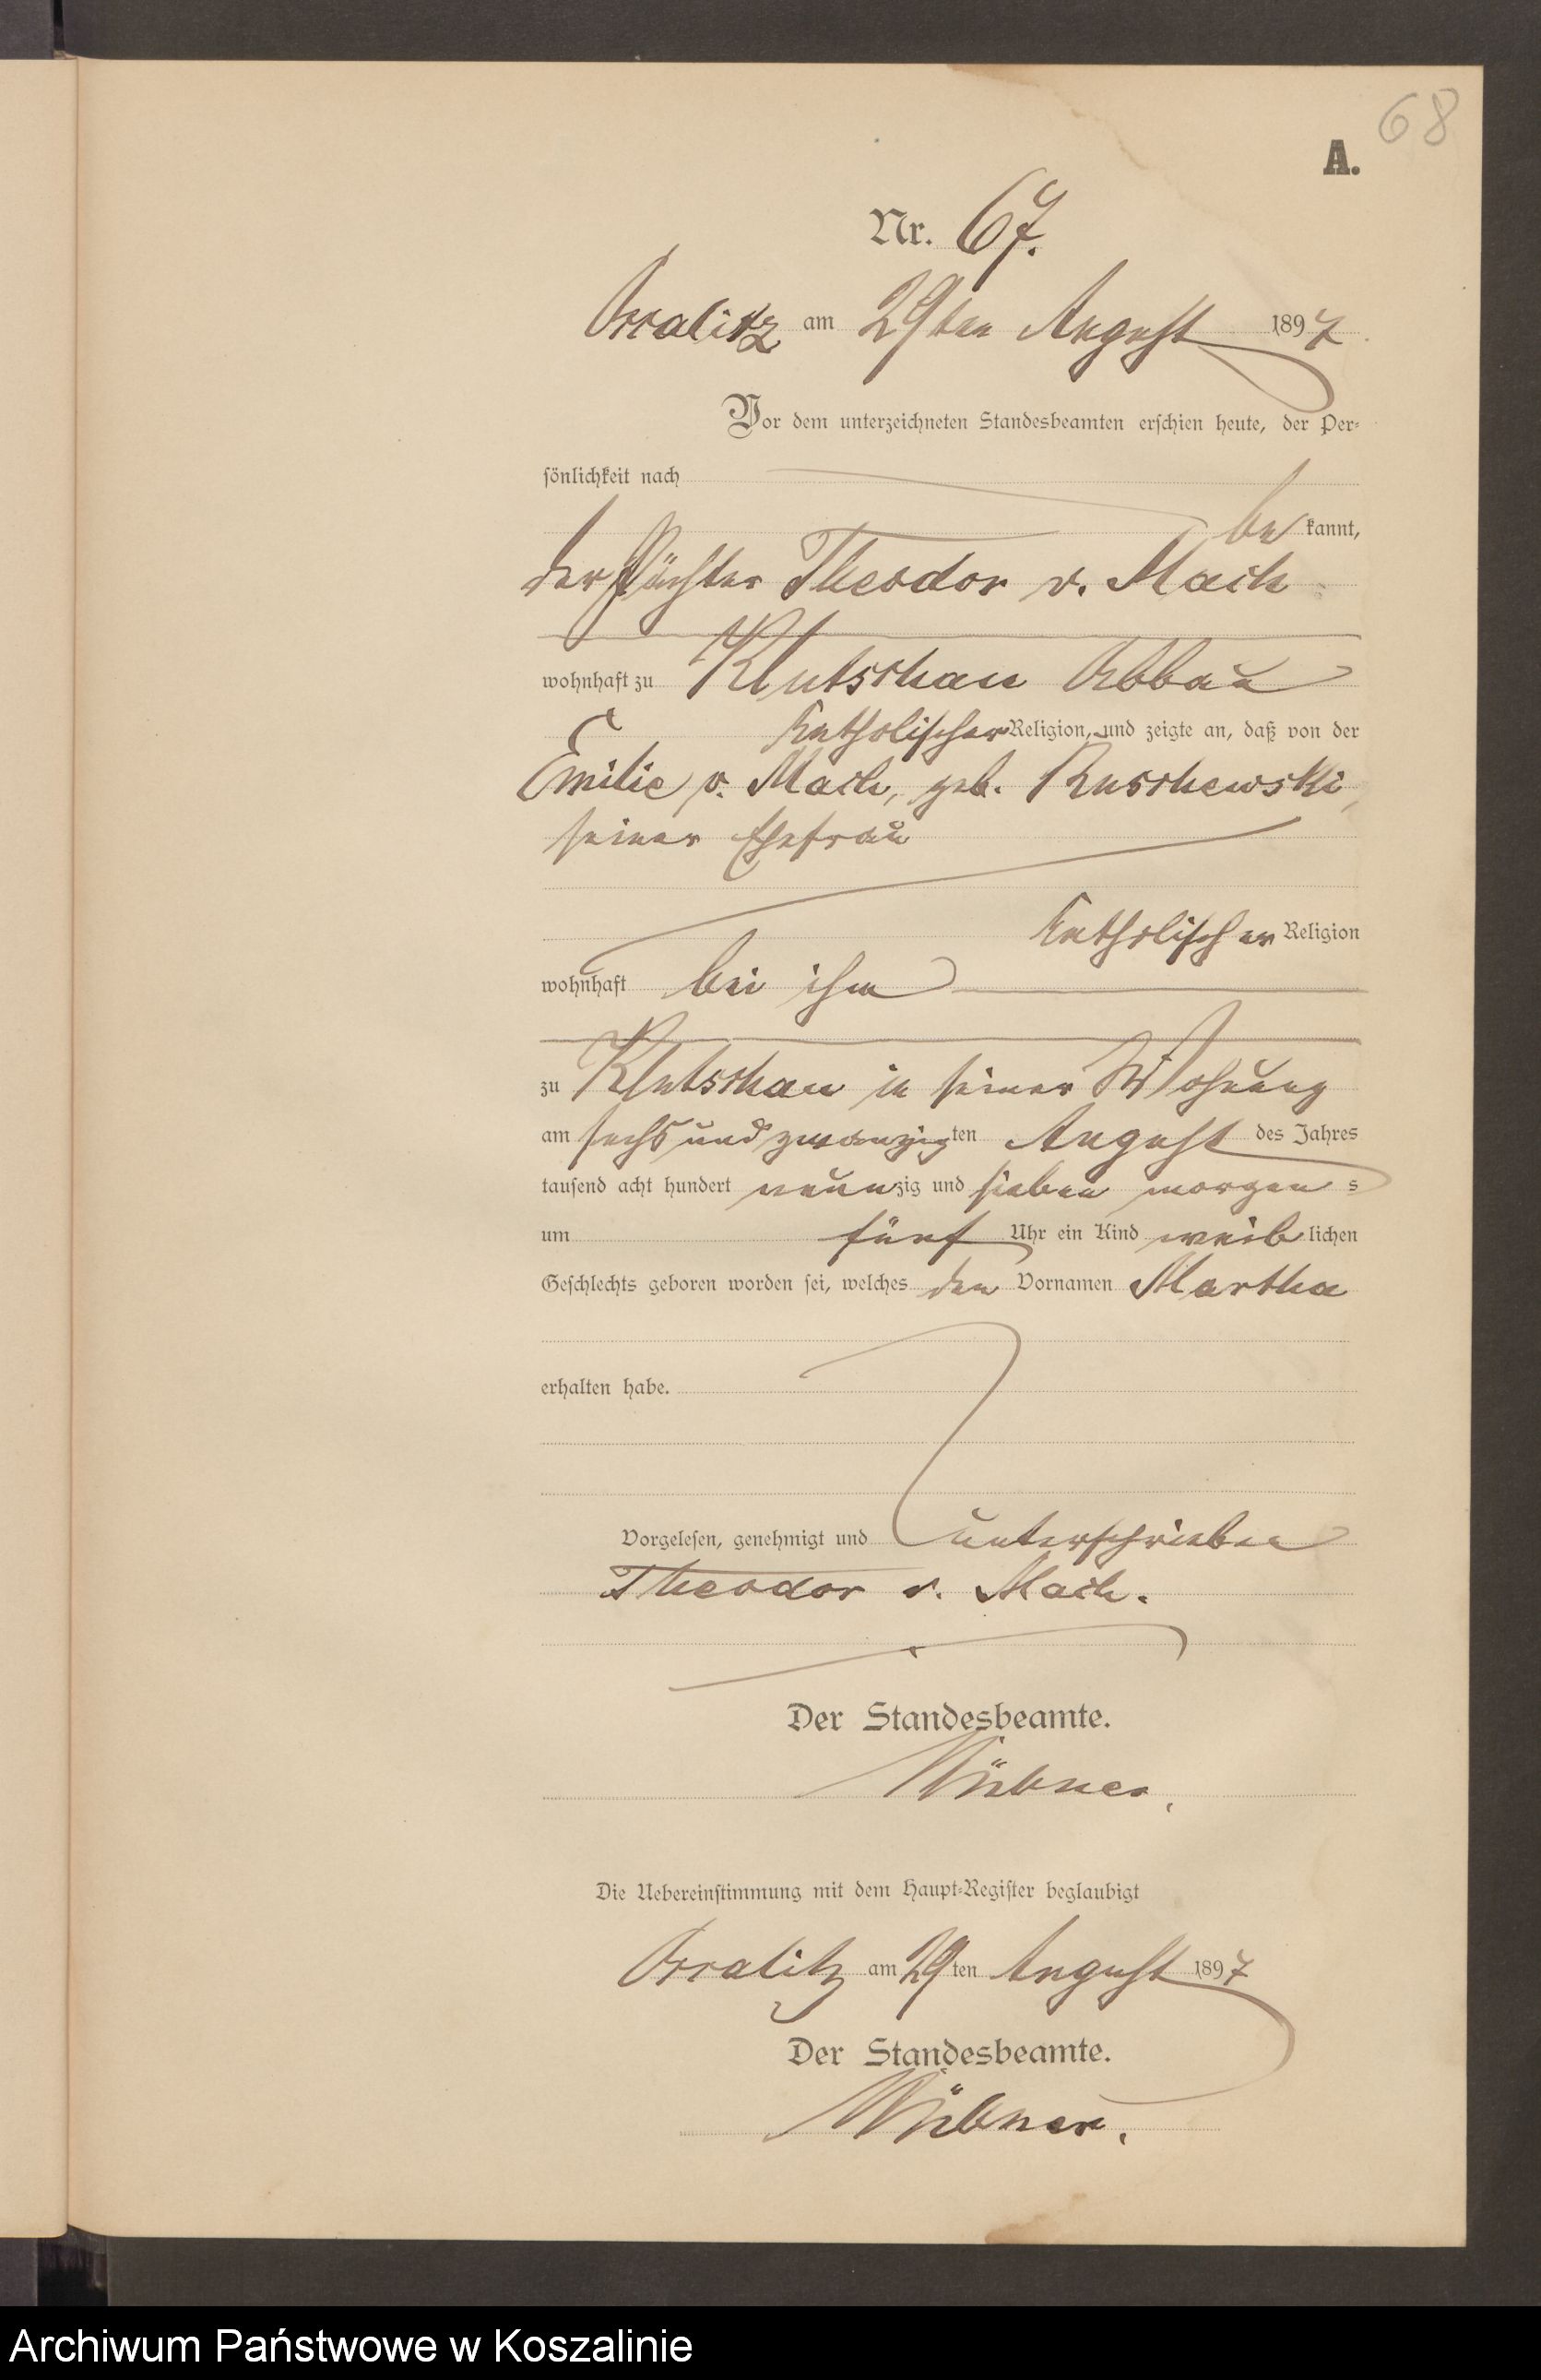 68
A.
Nr. 67.
Occalitz am 29ten August 1897
Vor dem unterzeichneten Standesbeamten erschien heute, der Per-
sönlichkeit nach
be kannt,
der Pächter Theodor v. Mach
wohnhaft zu Klutschau Abbau
katholischer Religion, und zeigte an, daß von der
Emilie v. Mach, geb. Ruschewski,
seiner Ehefrau
katholischer Religion
wohnhaft bei ihm
zu Klutschau in seiner Wohnung
am sechs und zwanzigten August des Jahres
tausend acht hundert neunzig und sieben morgens
um fünf Uhr ein Kind weiblichen
Geschlechts geboren worden sei, welches den Vornamen Martha
erhalten habe.
Vorgelesen, genehmigt und unterschrieben
Theodor v. Mach.
Der Standesbeamte.
Die Uebereinstimmung mit dem Haupt-Register beglaubigt
Occalitz am 29ten August 1897
Der Standesbeamte.
Archiwum Państwowe w Koszalinie